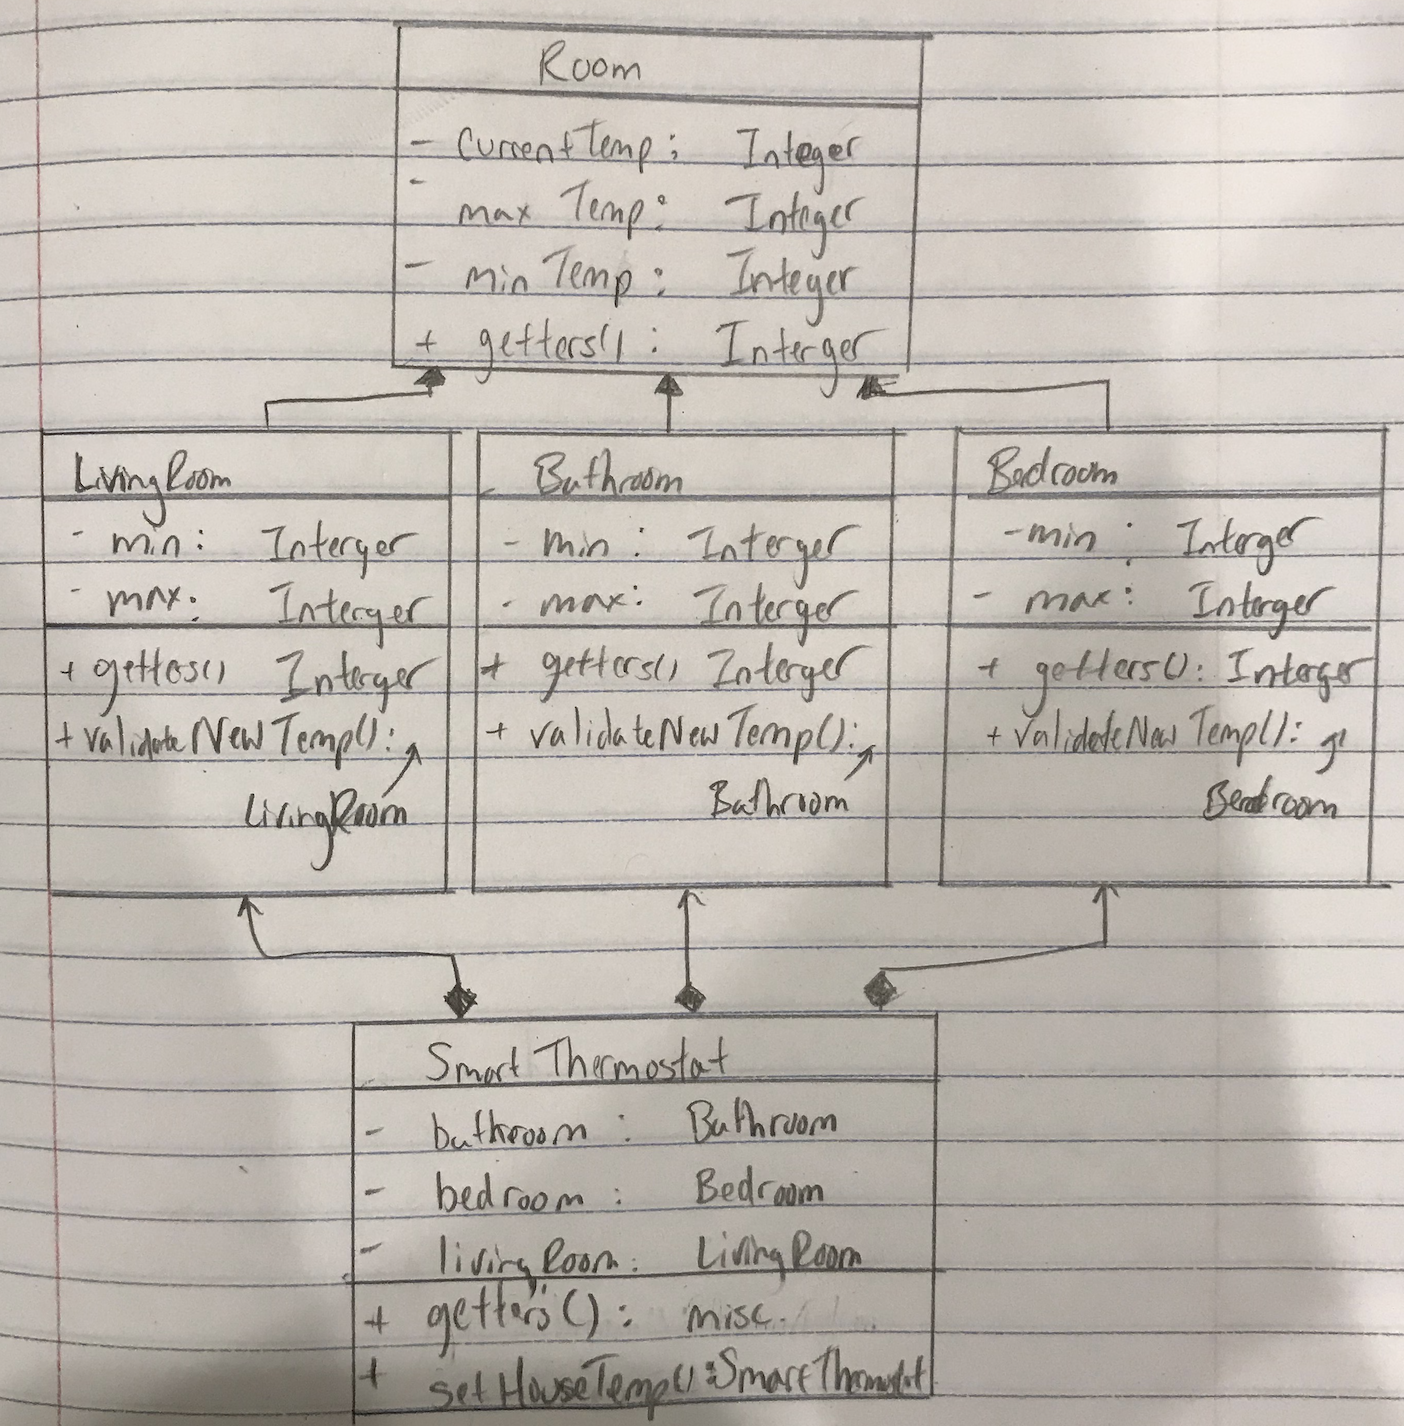 Room
- currentTemp: Integer
- max Temp: Integer
- minTemp: Integer
+ getters(): Interger
LivingRoom
- min: Interger
- max: Interger
+ getters() Interger
+ validateNewTemp():
LivingRoom
Bathroom
- min: Interger
- max: Interger
+ getters() Interger
+ validateNewTemp():
Bathroom
Bedroom
- min: Interger
- max: Interger
+ getters(): Interger
+ validateNewTemp():
Bedroom
Smart Thermostat
- bathroom: Bathroom
- bedroom: Bedroom
- livingRoom: LivingRoom
+ getters(): misc.
+ setHouseTemp(): SmartThermostat